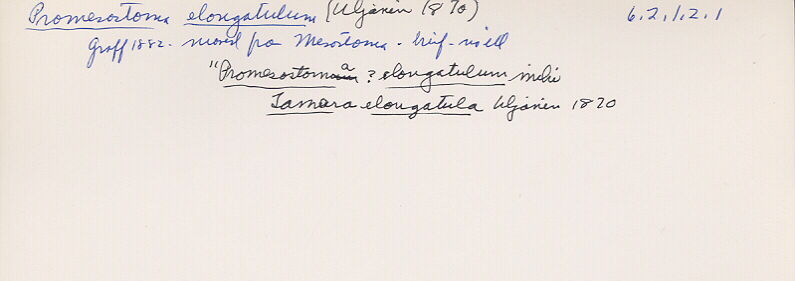 Promesostoma elongatulum (Uljanin 1870) 6.2.1.2.1
Graff 1882 - moved fro Mesostoma - brief - no ill
"Promesostoma ? elongatulum mihi
Tamara elongatula Uljanin 1870